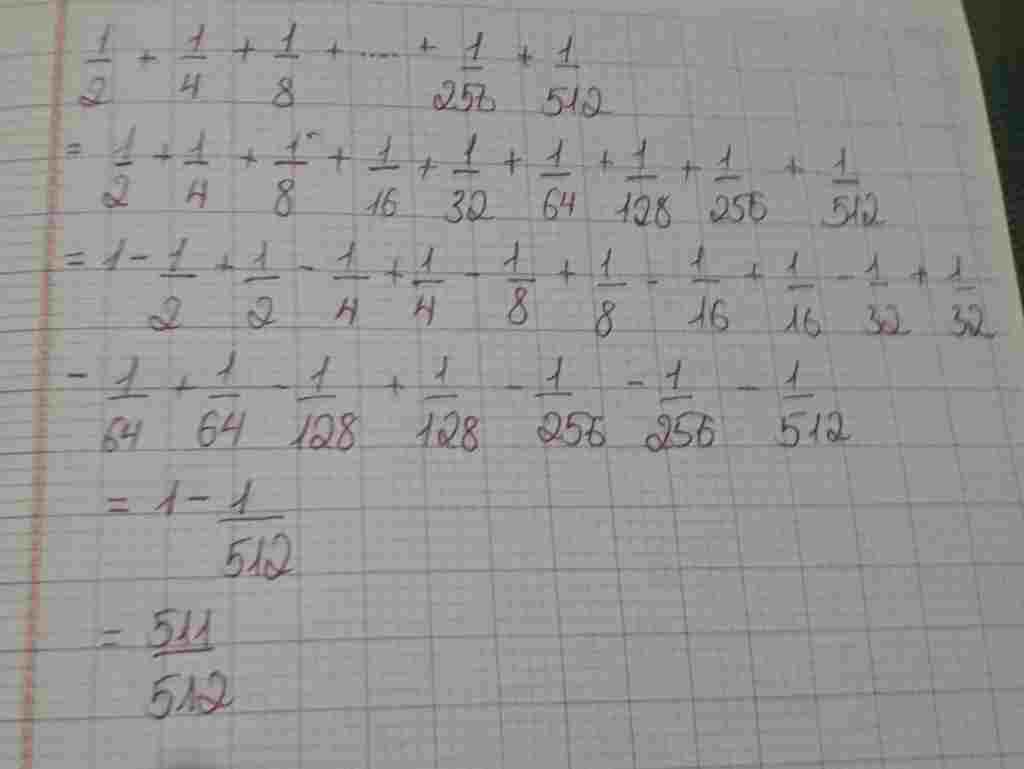 1/2 + 1/4 + 1/8 + .... + 1/256 + 1/512
= 1/2 + 1/4 + 1/8 + 1/16 + 1/32 + 1/64 + 1/128 + 1/256 + 1/512
= 1 - 1/2 + 1/2 - 1/4 + 1/4 - 1/8 + 1/8 - 1/16 + 1/16 - 1/32 + 1/32
- 1/64 + 1/64 - 1/128 + 1/128 - 1/256 - 1/256 - 1/512
= 1 - 1/512
= 511/512